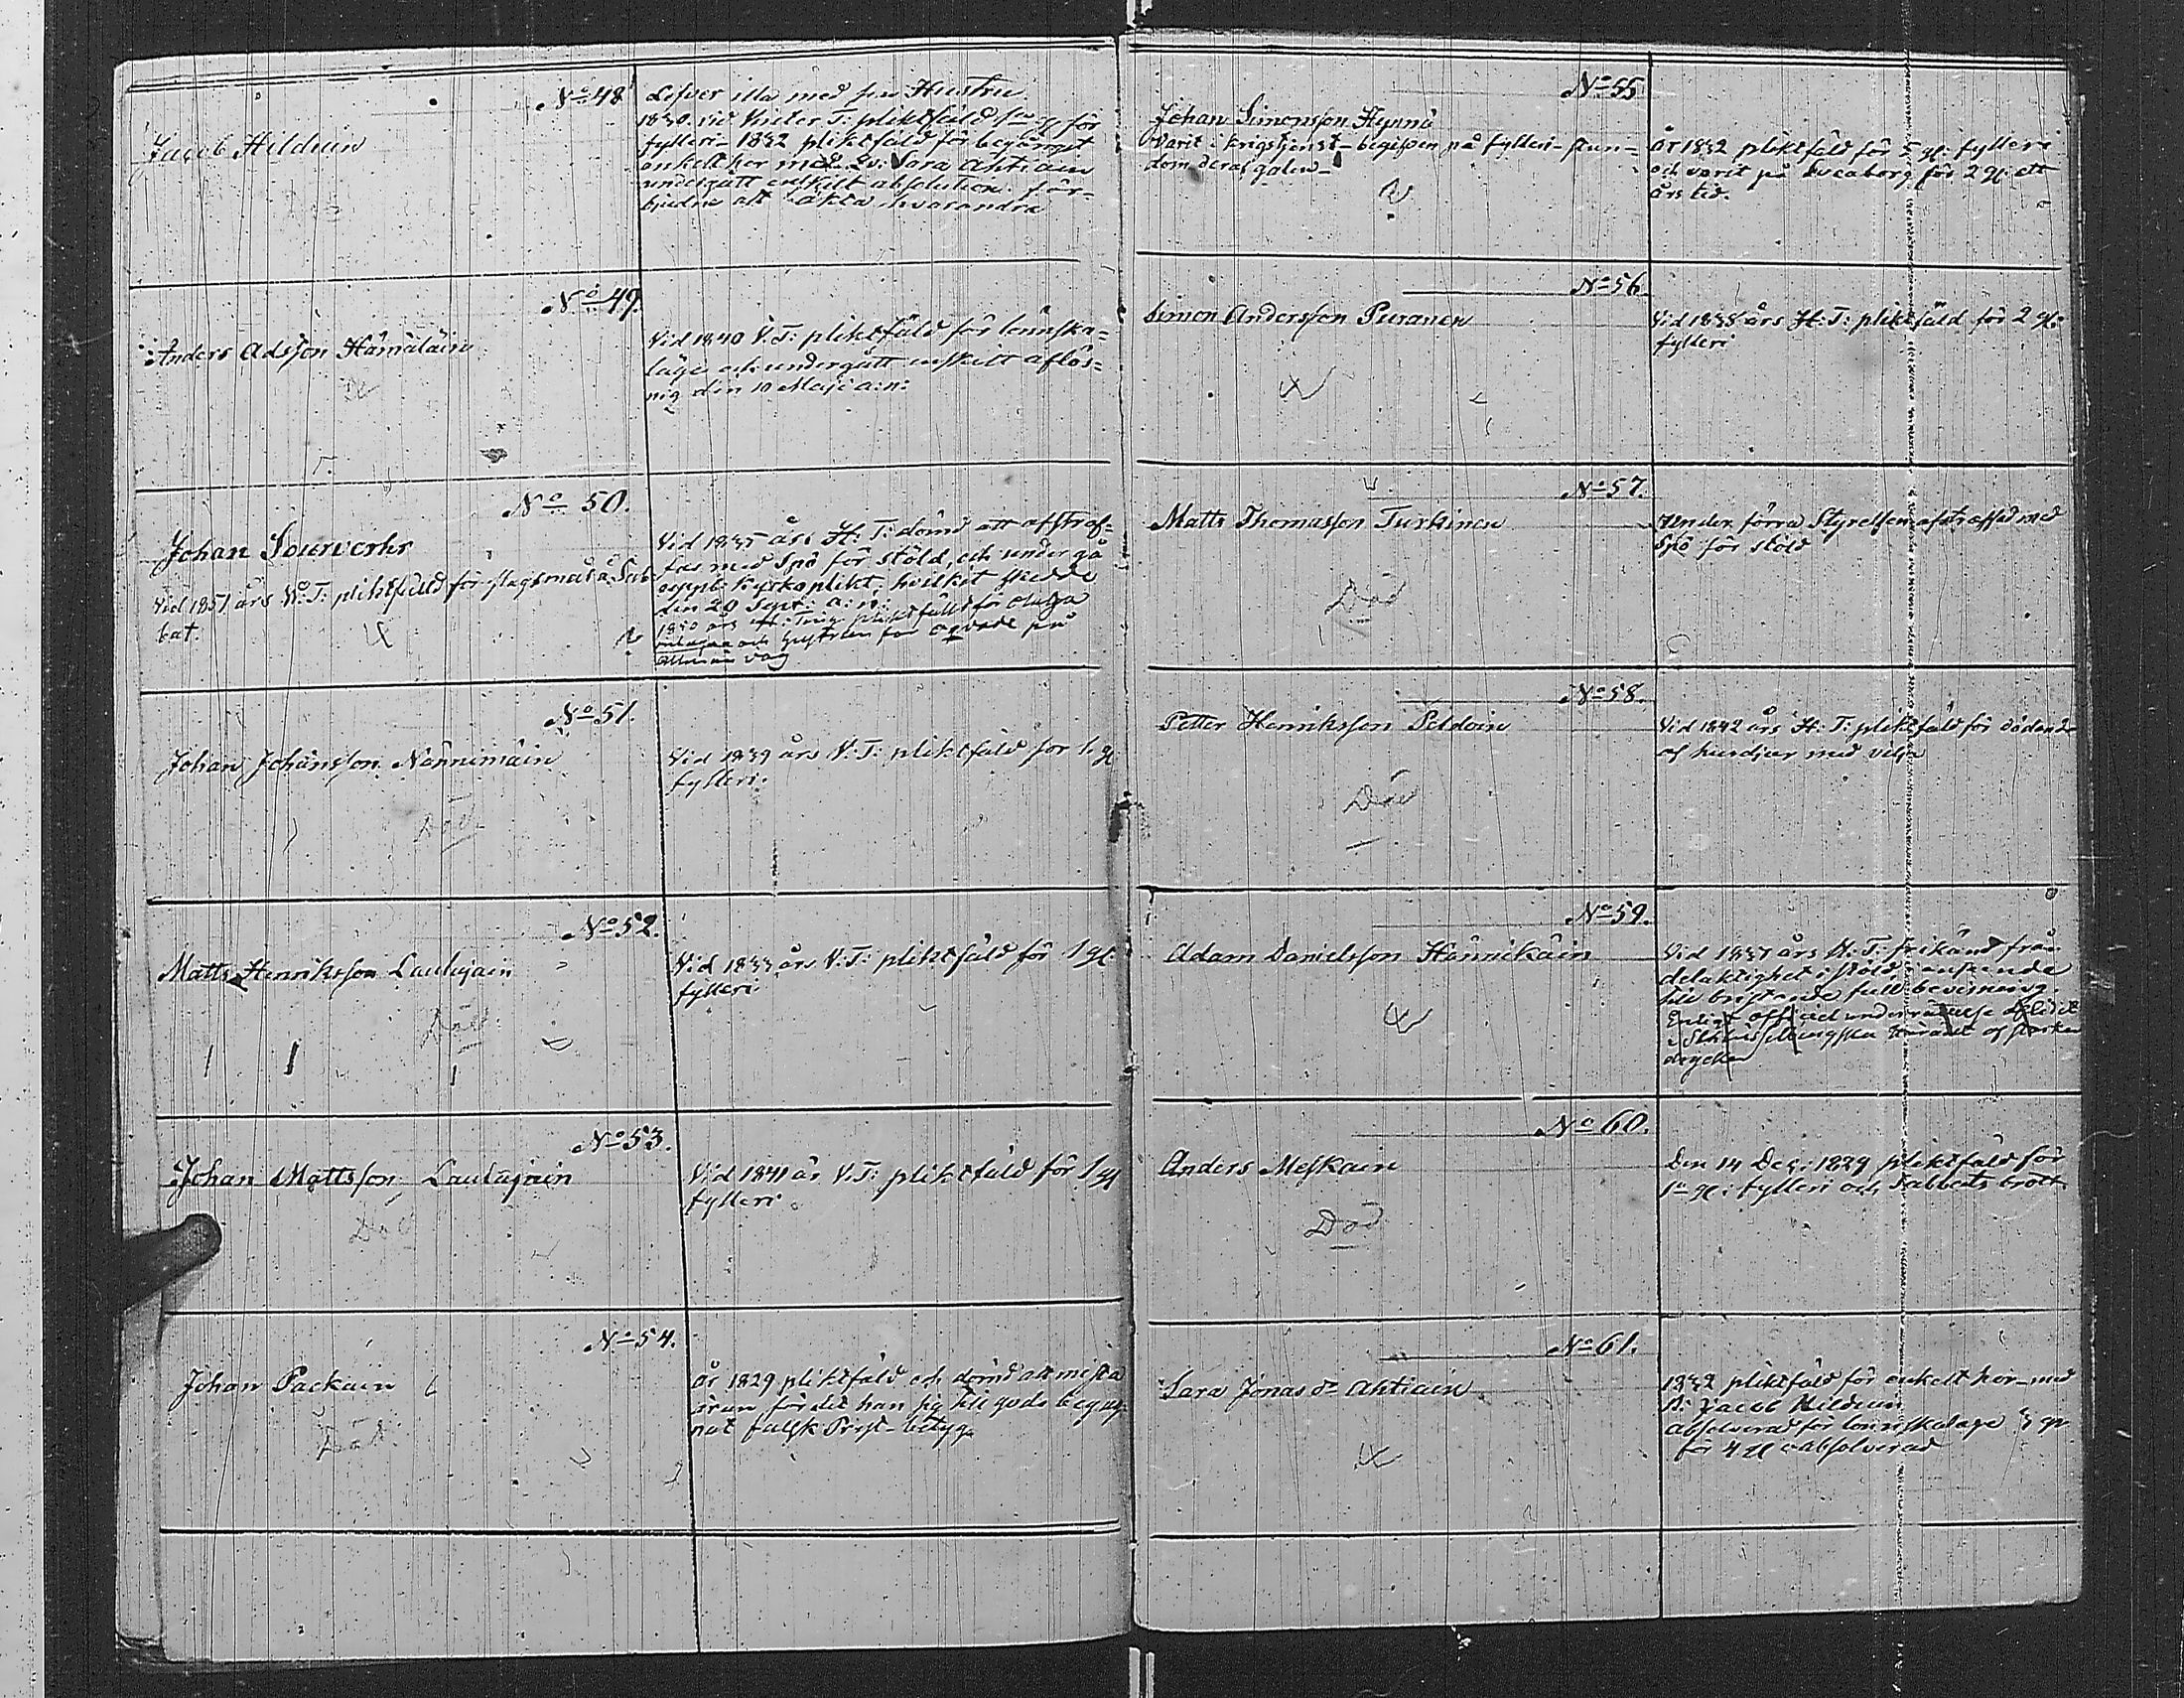 No 48
Jacob Hilduin
Lefver illa med sin Hustru
1830 vid Vinter T: pliktfäld för
fylleri - 1832 pliktfäld för begånget
enkelt hor med Sara Ahtiain
undergått enskilt absolution för-
bjudne att äkta hvarandra
No 49.
Anders Adsson Hämäläin
Vid 1840 V:T: pliktfäld för lönska-
läge och undergått enskilt aflös-
nig den 10 Maji a:n:
No 50.
Johan Sourverhr
Vid 1851 års V:T: pliktfäld för slagsmål å Sab-
bat.
Vid 1835 års H:T: dömd att afstraf-
fas med Spö för Stöld, och undergå
uppb: Kyrkoplikt, hvilket skedde
den 20 Sept: a:n:
1850 års H: Ting pliktfälld för olaga
och för oqvade på
allmän väg
No 51.
Johan Johansson Nännimäin
Död
Vid 1839 års V:T: pliktfäld för 1 g
fylleri.
No 52.
Matts Henriksson Laulajain
Död
Vid 1833 års V:T: pliktfäld för 1 g:
fylleri
No 53.
Johan Mattsson Laulajain
Död
Vid 1841 år V:T: pliktfäld för 1 g
fylleri
No 54.
Johan Packain
Död.
År 1829 pliktfäld och dömd att mista
äran för det han sig till godo begag-
nat falsk Präst-betyg
No 55
Johan Simonsson Hynnä
Varit i krigstjenst - begifven på fylleri - stun-
dom deras galen -
År 1832 pliktfäld för 5 g: fylleri
och varit på Sveaborg för 2 g: ett
års tid.
No 56
Simon Andersson Puranen
Vid 1838 års H:T: pliktfäld för 2 g:
fylleri
No 57.
Matts Thomasson Turkinen
Död
Under förra Styrelsen afstraffad med
Spö för stöld
No 58.
Petter Henriksson Peldoin
Död
Vid 1842 års H:T: pliktfäld för dödande
af husdjur med vilja
No 59.
Adam Danielsson Hännikäin
Vid 1837 års H:T: frikänd från
delaktighet i stöld, i anseende
till bristande full bevisning.
Enligt officiel underrättelse aflidit
i häradet af starka
drycker
No 60.
Anders Meskain
Död
Den 14 Dec: 1829 pliktfäld för
1a g: fylleri och Sabbats brott
No 61.
Sara Jonas dr Ahtiain
1832 pliktfäld för enkelt hor - med
B: Jacob Hilduin
absolverad för lönskaläge 3 g
för 4 g absolverad